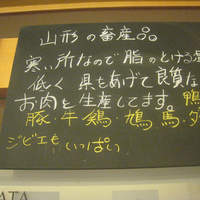 山形の畜産品
寒い所なので脂のとける点
低く 臭をあげて良質な
お肉を生産してます。鴨
豚・牛・鶏・鳩・馬・
ジビエもいっぱい
ATA